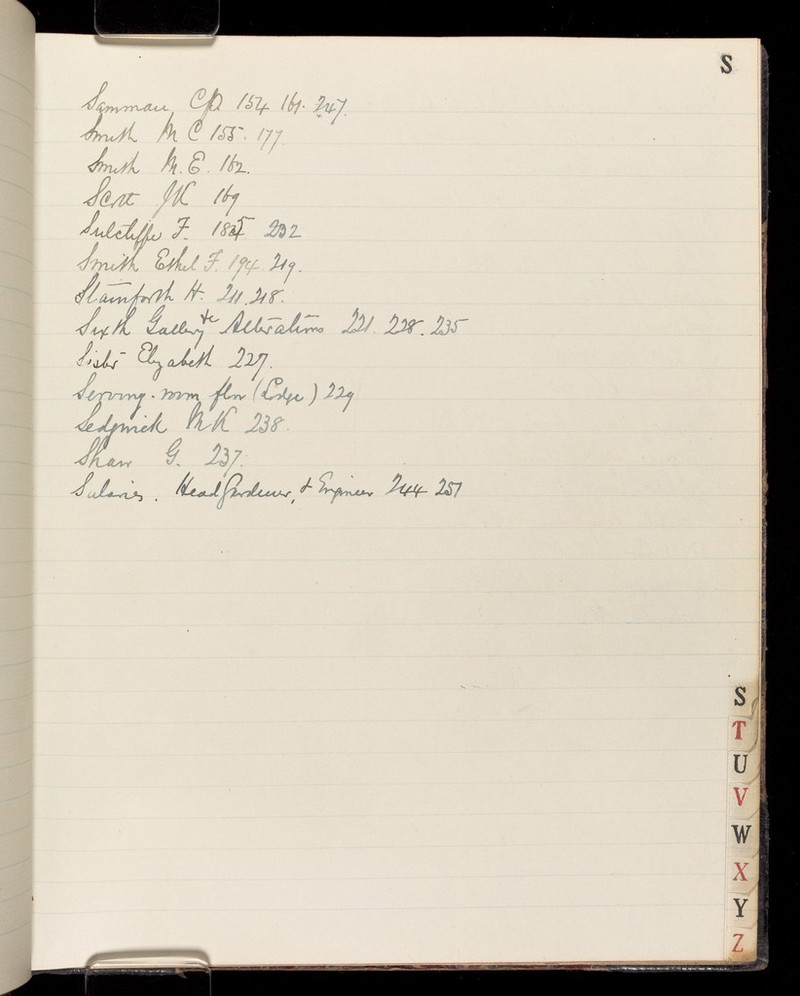 S
Samman C.D. 154 161. 247.
Smith M C 155. 177.
Smith M. E. 162.
Scott J K 169
Sutcliffe F. 185 232
Smith Ethel F. 194. 219.
Stainforth H. 211. 218.
Sixth Gallery &c Alterations 221. 228. 235
Sister Elizabeth 227.
Serving-room flr (Lodge) 229
Sedgwick M K 238.
Shaw G. 237.
Salaries. Head Gardener, & Engineer 244 251
S
T
U
V
W
X
Y
Z